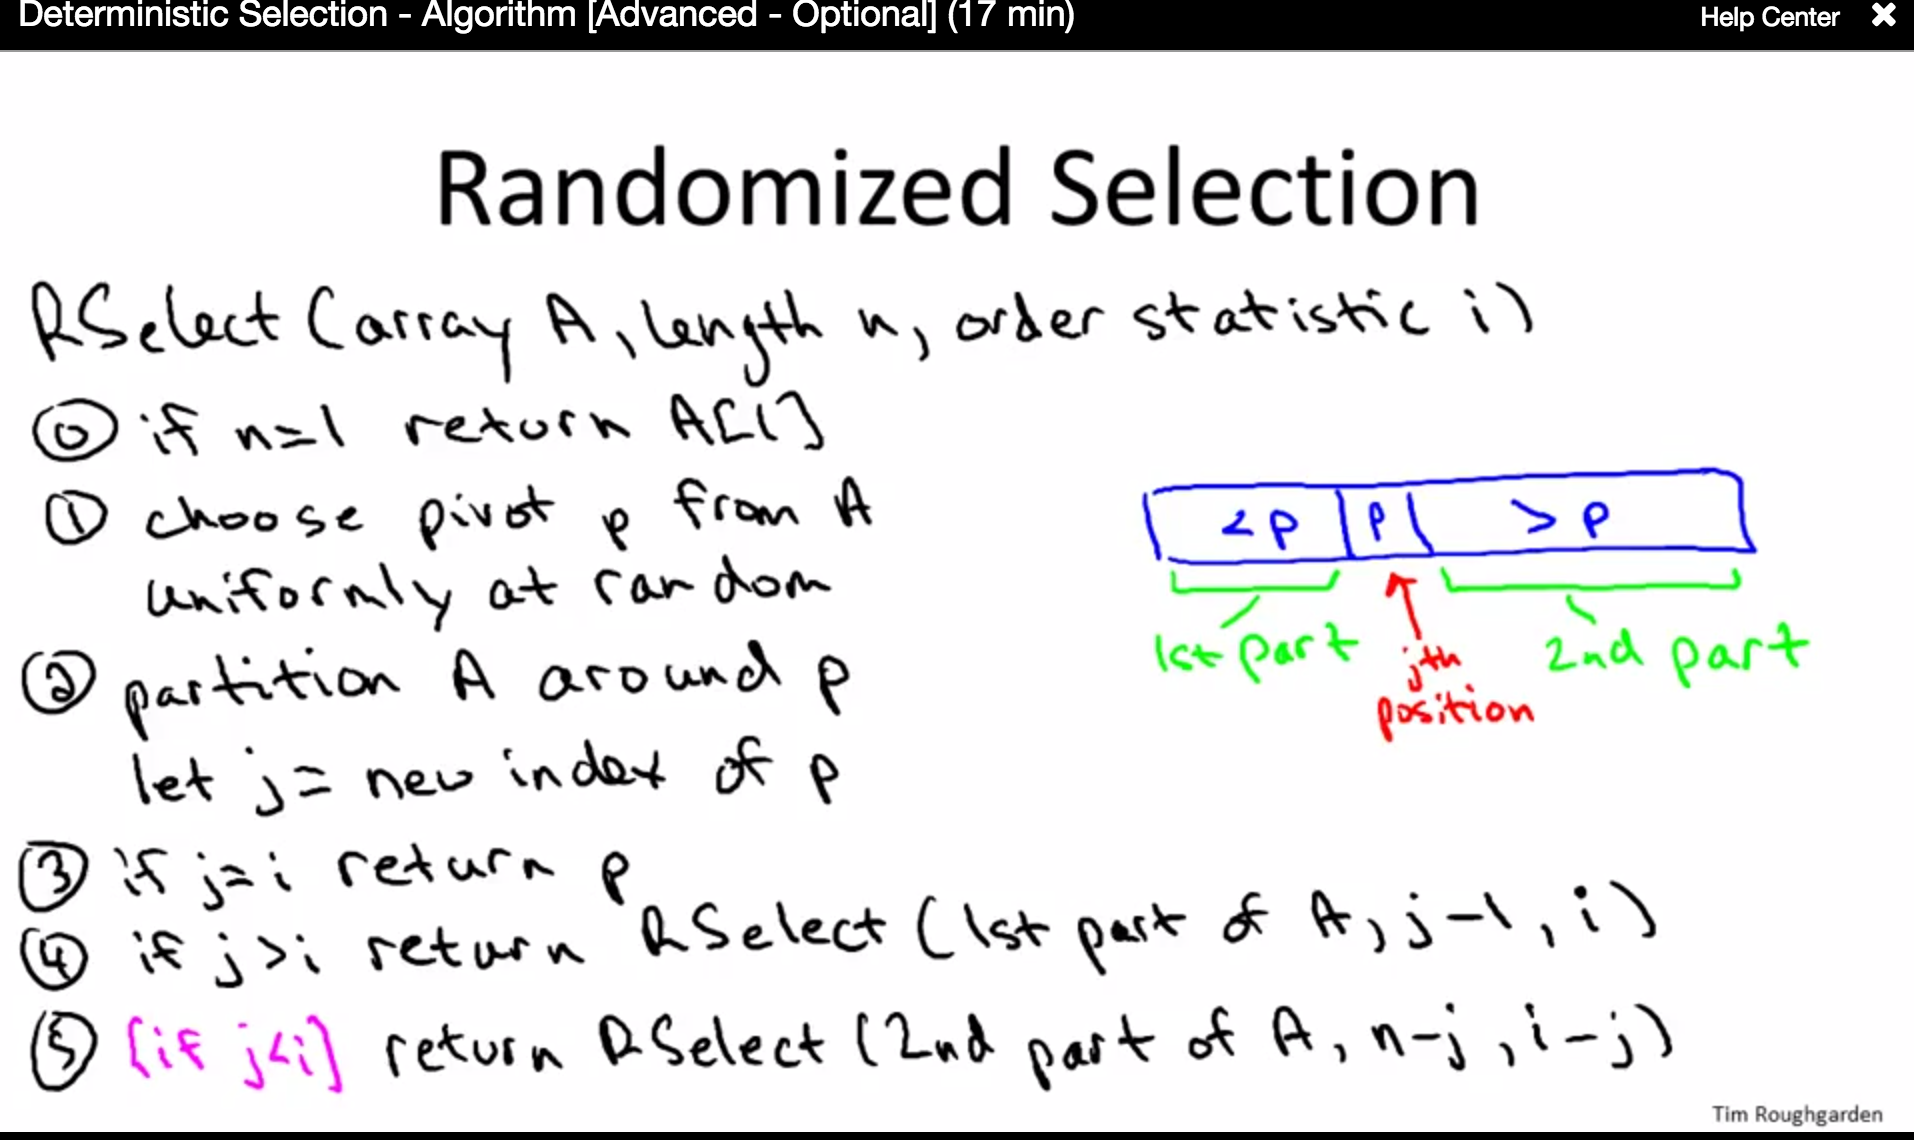 Deterministic Selection - Algorithm [Advanced - Optional] (17 min)
Help Center ✕
Randomized Selection
RSelect (array A, length n, order statistic i)
⓪ if n=1 return A[1]
① choose pivot p from A
uniformly at random
② partition A around p
let j = new index of p
③ if j=i return p
④ if j>i return RSelect (1st part of A, j-1, i)
⑤ [if j<i] return RSelect (2nd part of A, n-j, i-j)
<p p >p
1st part
jth
position
2nd part
Tim Roughgarden